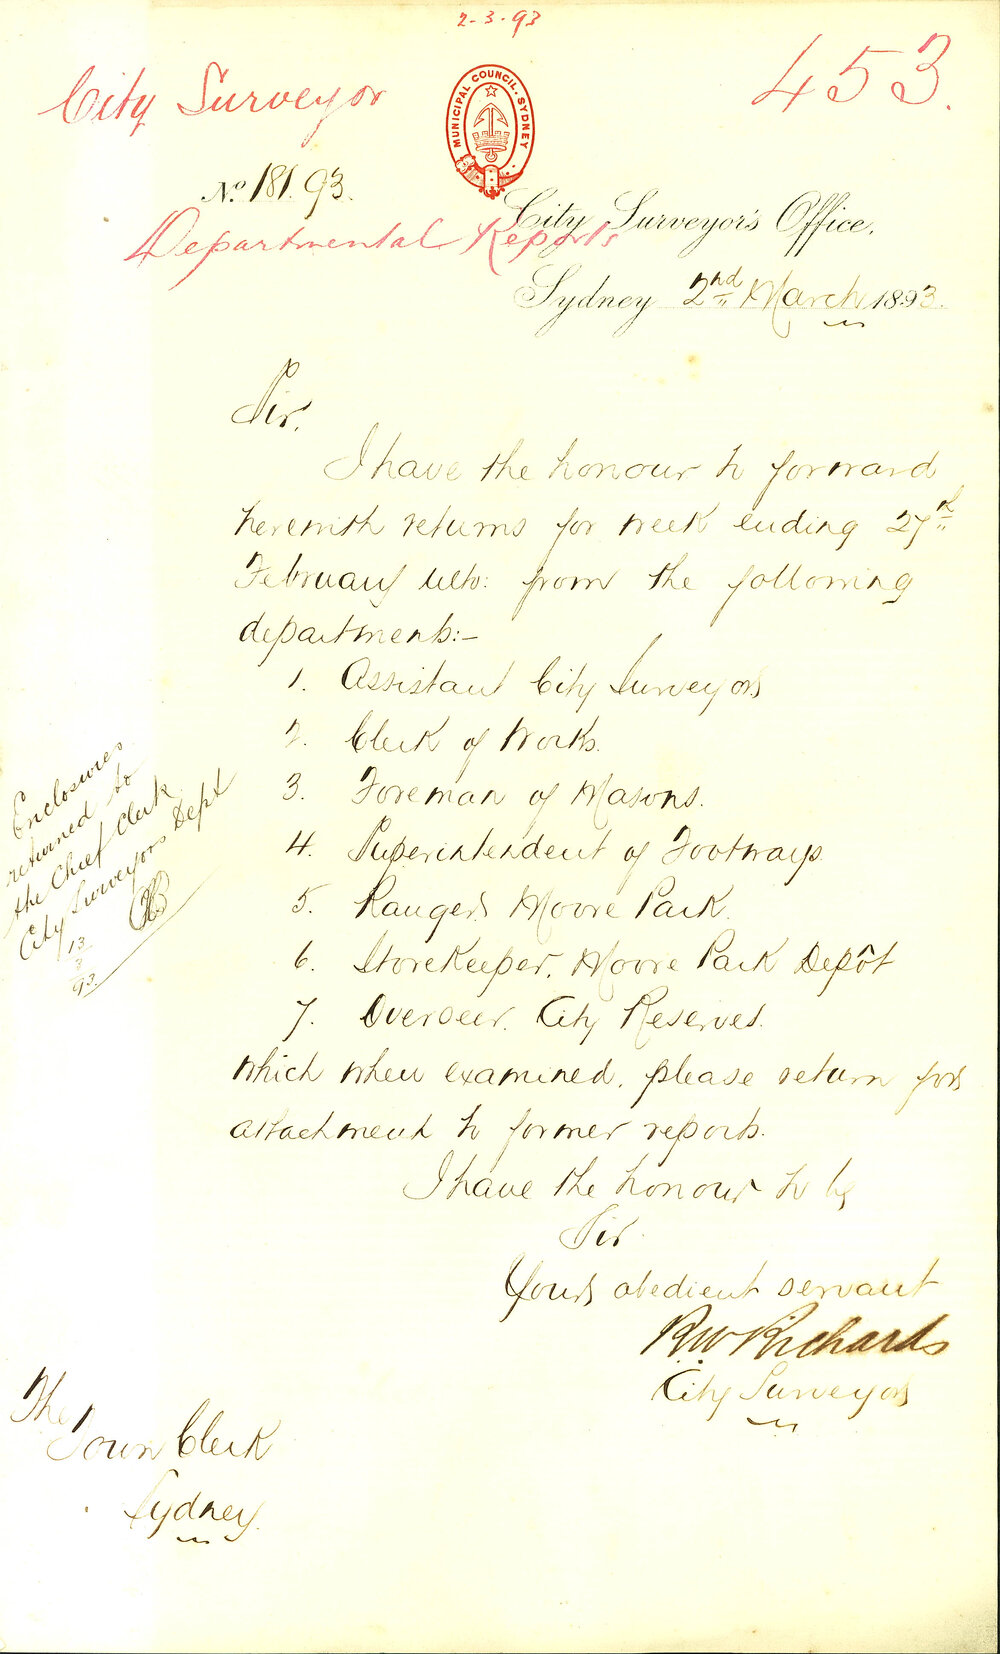 2-3-93
City Surveyor
453.
MUNICIPAL COUNCIL. SYDNEY
No. 181.93.
Departmental Reports
City Surveyor's Office,
Sydney 2nd March 1893.
Sir,
I have the honour to forward
herewith returns for week ending 27th
February ulto: from the following
departments:-
1. Assistant City Surveyor
2. Clerk of Works.
3. Foreman of Masons.
4. Superintendent of Footways.
5. Ranger Moore Park.
6. Storekeeper, Moore Park Depôt
7. Overseer, City Reserves.
which when examined, please return for
attachment to former reports.
I have the honour to be
Sir
Your obedient servant
RW Richards
City Surveyor
The
Town Clerk
Sydney.
Enclosures
returned to
the Chief Clerk
City Surveyors Dept
13
3
93.